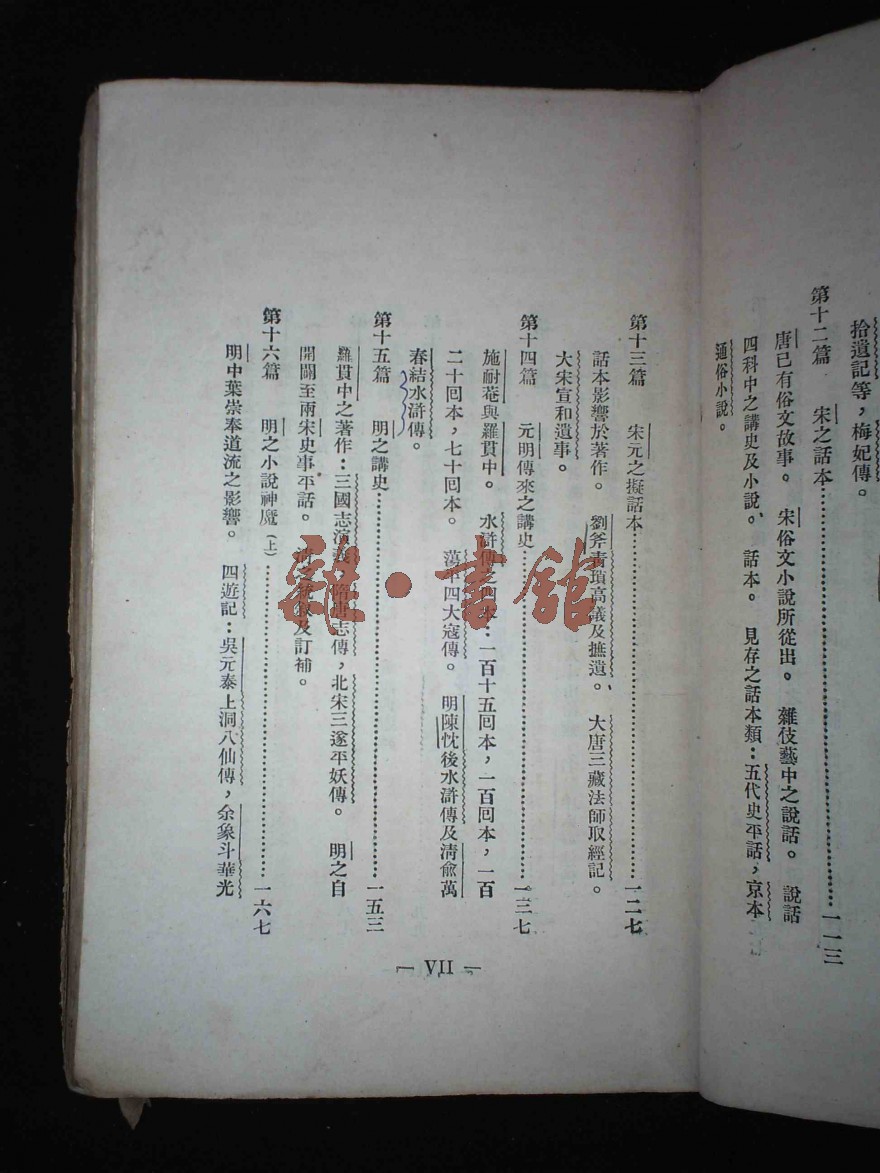 拾遺記等，梅妃傳。
第十二篇　宋之話本……一一三
唐已有俗文故事。　宋俗文小說所從出。　雜伎藝中之說話。　說話
四科中之講史及小說。　話本。　見存之話本類：五代史平話，京本
通俗小說。
第十三篇　宋元之擬話本……一二七
話本影響於著作。　劉斧青瑣高議及摭遺。　大唐三藏法師取經記。
大宋宣和遺事。
第十四篇　元明傳來之講史……一三七
施耐菴與羅貫中。　水滸傳之四本：一百十五回本，一百回本，一百
二十回本，七十回本。　蕩平四大寇傳。　明陳忱後水滸傳及淸兪萬
春結水滸傳。
第十五篇　明之講史……一五三
羅貫中之著作：三國志演義，隋唐志傳，北宋三遂平妖傳。　明之自
開闢至兩宋史事平話。　及訂補。
第十六篇　明之小說神魔（上）……一六七
明中葉崇奉道流之影響。　四遊記：吳元泰上洞八仙傳，余象斗華光
— VII —
龍·書館